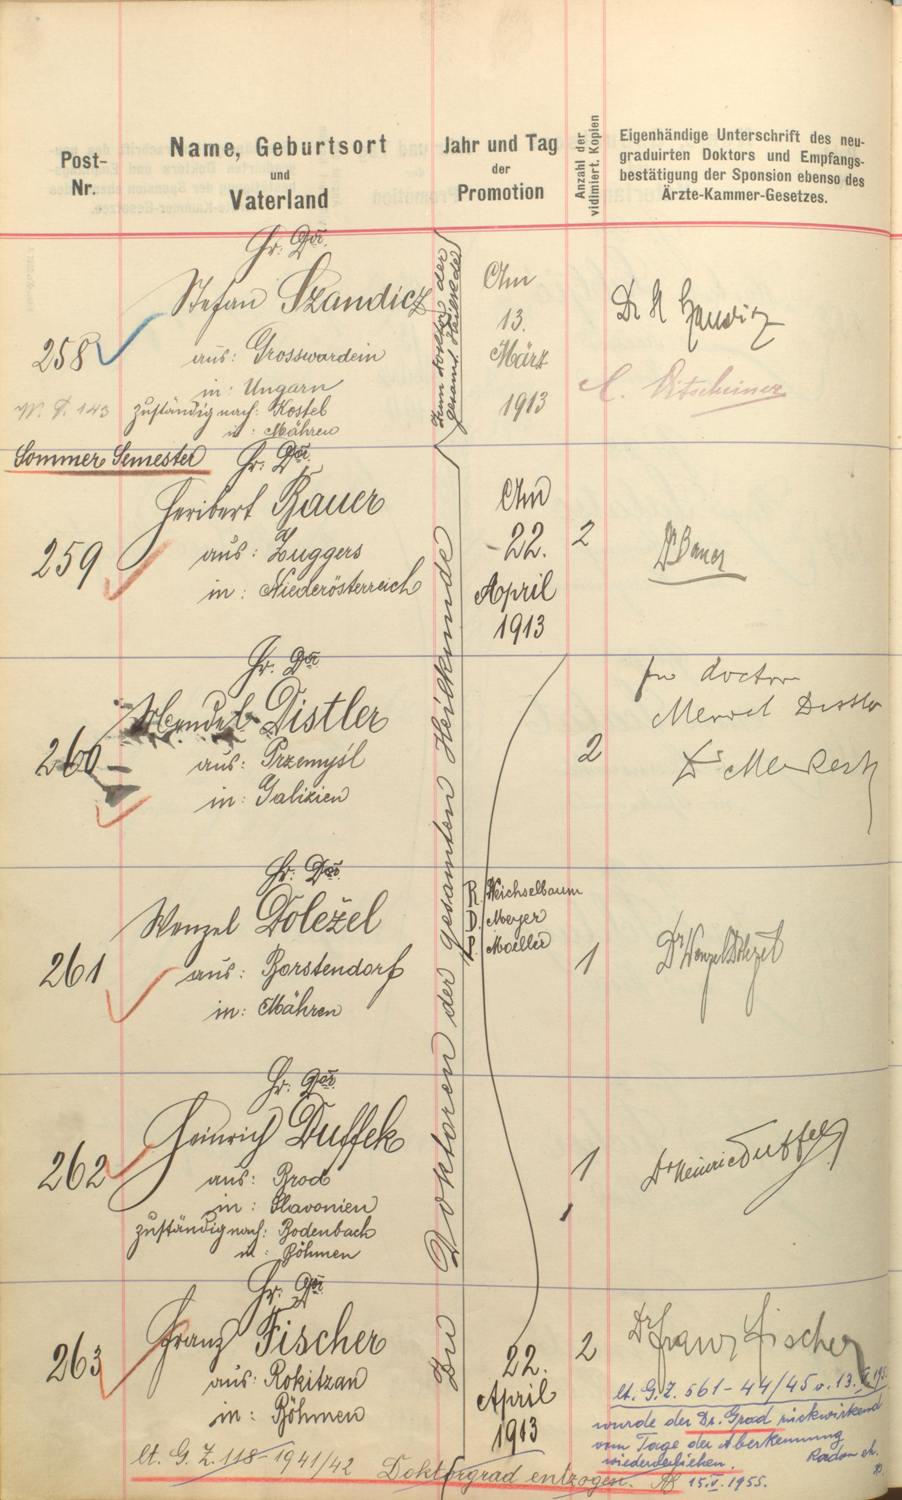 Post-
Nr.
Name, Geburtsort
und
Vaterland
Jahr und Tag
der
Promotion
Anzahl der
vidimiert. Kopien
Eigenhändige Unterschrift des neu-
graduirten Doktors und Empfangs-
bestätigung der Sponsion ebenso des
Ärzte-Kammer-Gesetzes.
258
Hr. Dr.
Stefan Szandicz
aus: Grosswardein
in: Ungarn
zuständig nach: Kostel
in: Mähren
Zum Doktor der
gesamt. Heilkunde
Am
13.
März
1913
Sommer Semester
259
Hr. Dr.
Heribert Bauer
aus: Zuggers
in: Niederösterreich
Am
22.
April
1913
2
Dr Bauer
260
Hr. Dr.
Mendel Distler
aus: Przemyśl
in: Galizien
2
261
Hr. Dr.
Wenzel Doležel
aus: Borstendorf
in: Mähren
R. Weichselbaum
D. Meyer
P. Moeller
1
Dr Wenzel Doležel
262
Hr. Dr.
Heinrich Duffek
aus: Brod
in: Slavonien
zuständig nach: Bodenbach
in: Böhmen
1
Dr Heinrich Duffek
263
Hr. Dr.
Franz Fischer
aus: Rokitzan
in: Böhmen
Zu Doktoren der gesamten Heilkunde
22.
April
1913
2
Dr Franz Fischer
lt. G. Z. 561-44/45 v. 13.
wurde der Dr. Grad rückwirkend
vom Tage der Aberkennung
wiederverliehen.
15.V.1955.
lt. G. Z. 118-1941/42 Doktorgrad entzogen.